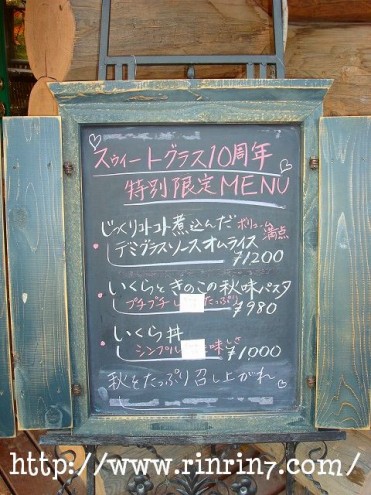 スウィートグラス10周年
特別限定MENU
じっくりコトコト煮込んだ ボリューム満点
デミグラスソースオムライス
¥1200
いくらときのこの秋味パスタ
プチプチ たっぷり ¥980
いくら丼
シンプル 味 ¥1000
秋をたっぷり召し上がれ
http://www.rinrin7.com/